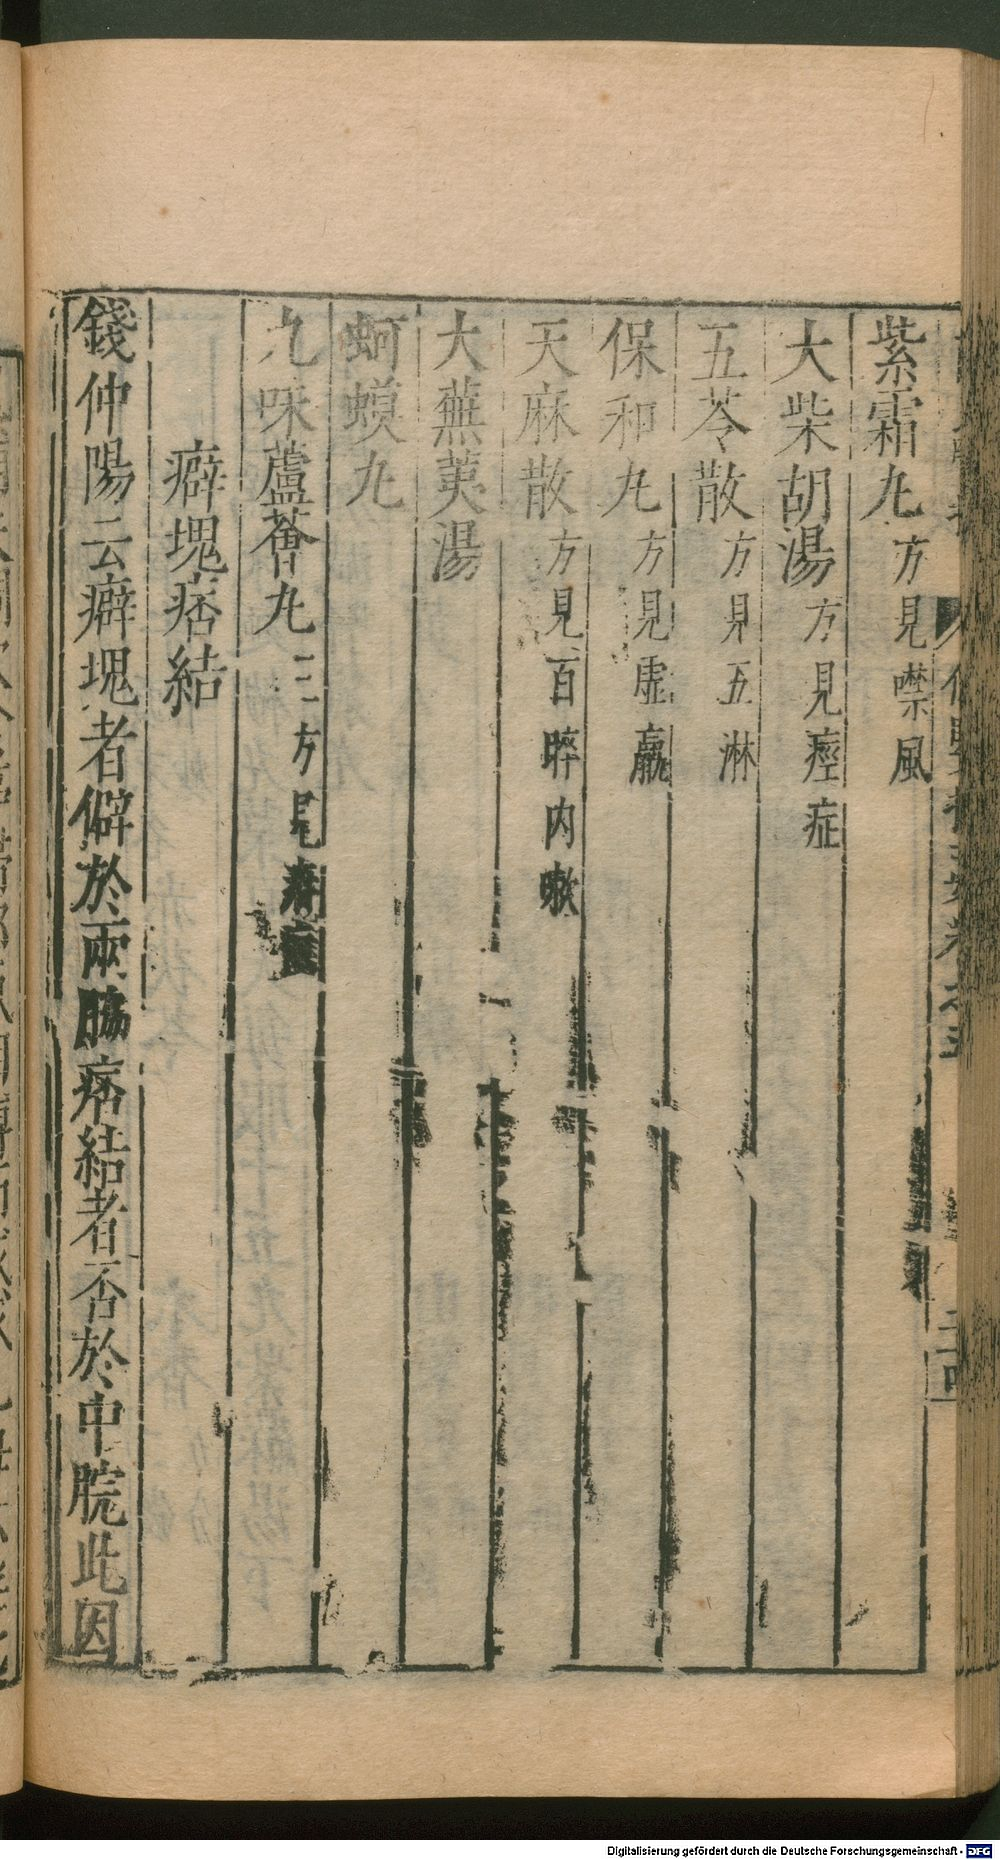 紫霜丸方見噤風
大柴胡湯方見痙症
五苓散方見五淋
保和丸方見虛羸
天麻散方見百晬內嗽
大蕪荑湯
蚵蟆丸
九味蘆薈丸三方見疳症
癖塊痞結
錢仲陽云癖塊者僻於兩脇痞結者否於中脘此因
Digitalisierung gefördert durch die Deutsche Forschungsgemeinschaft - DFG